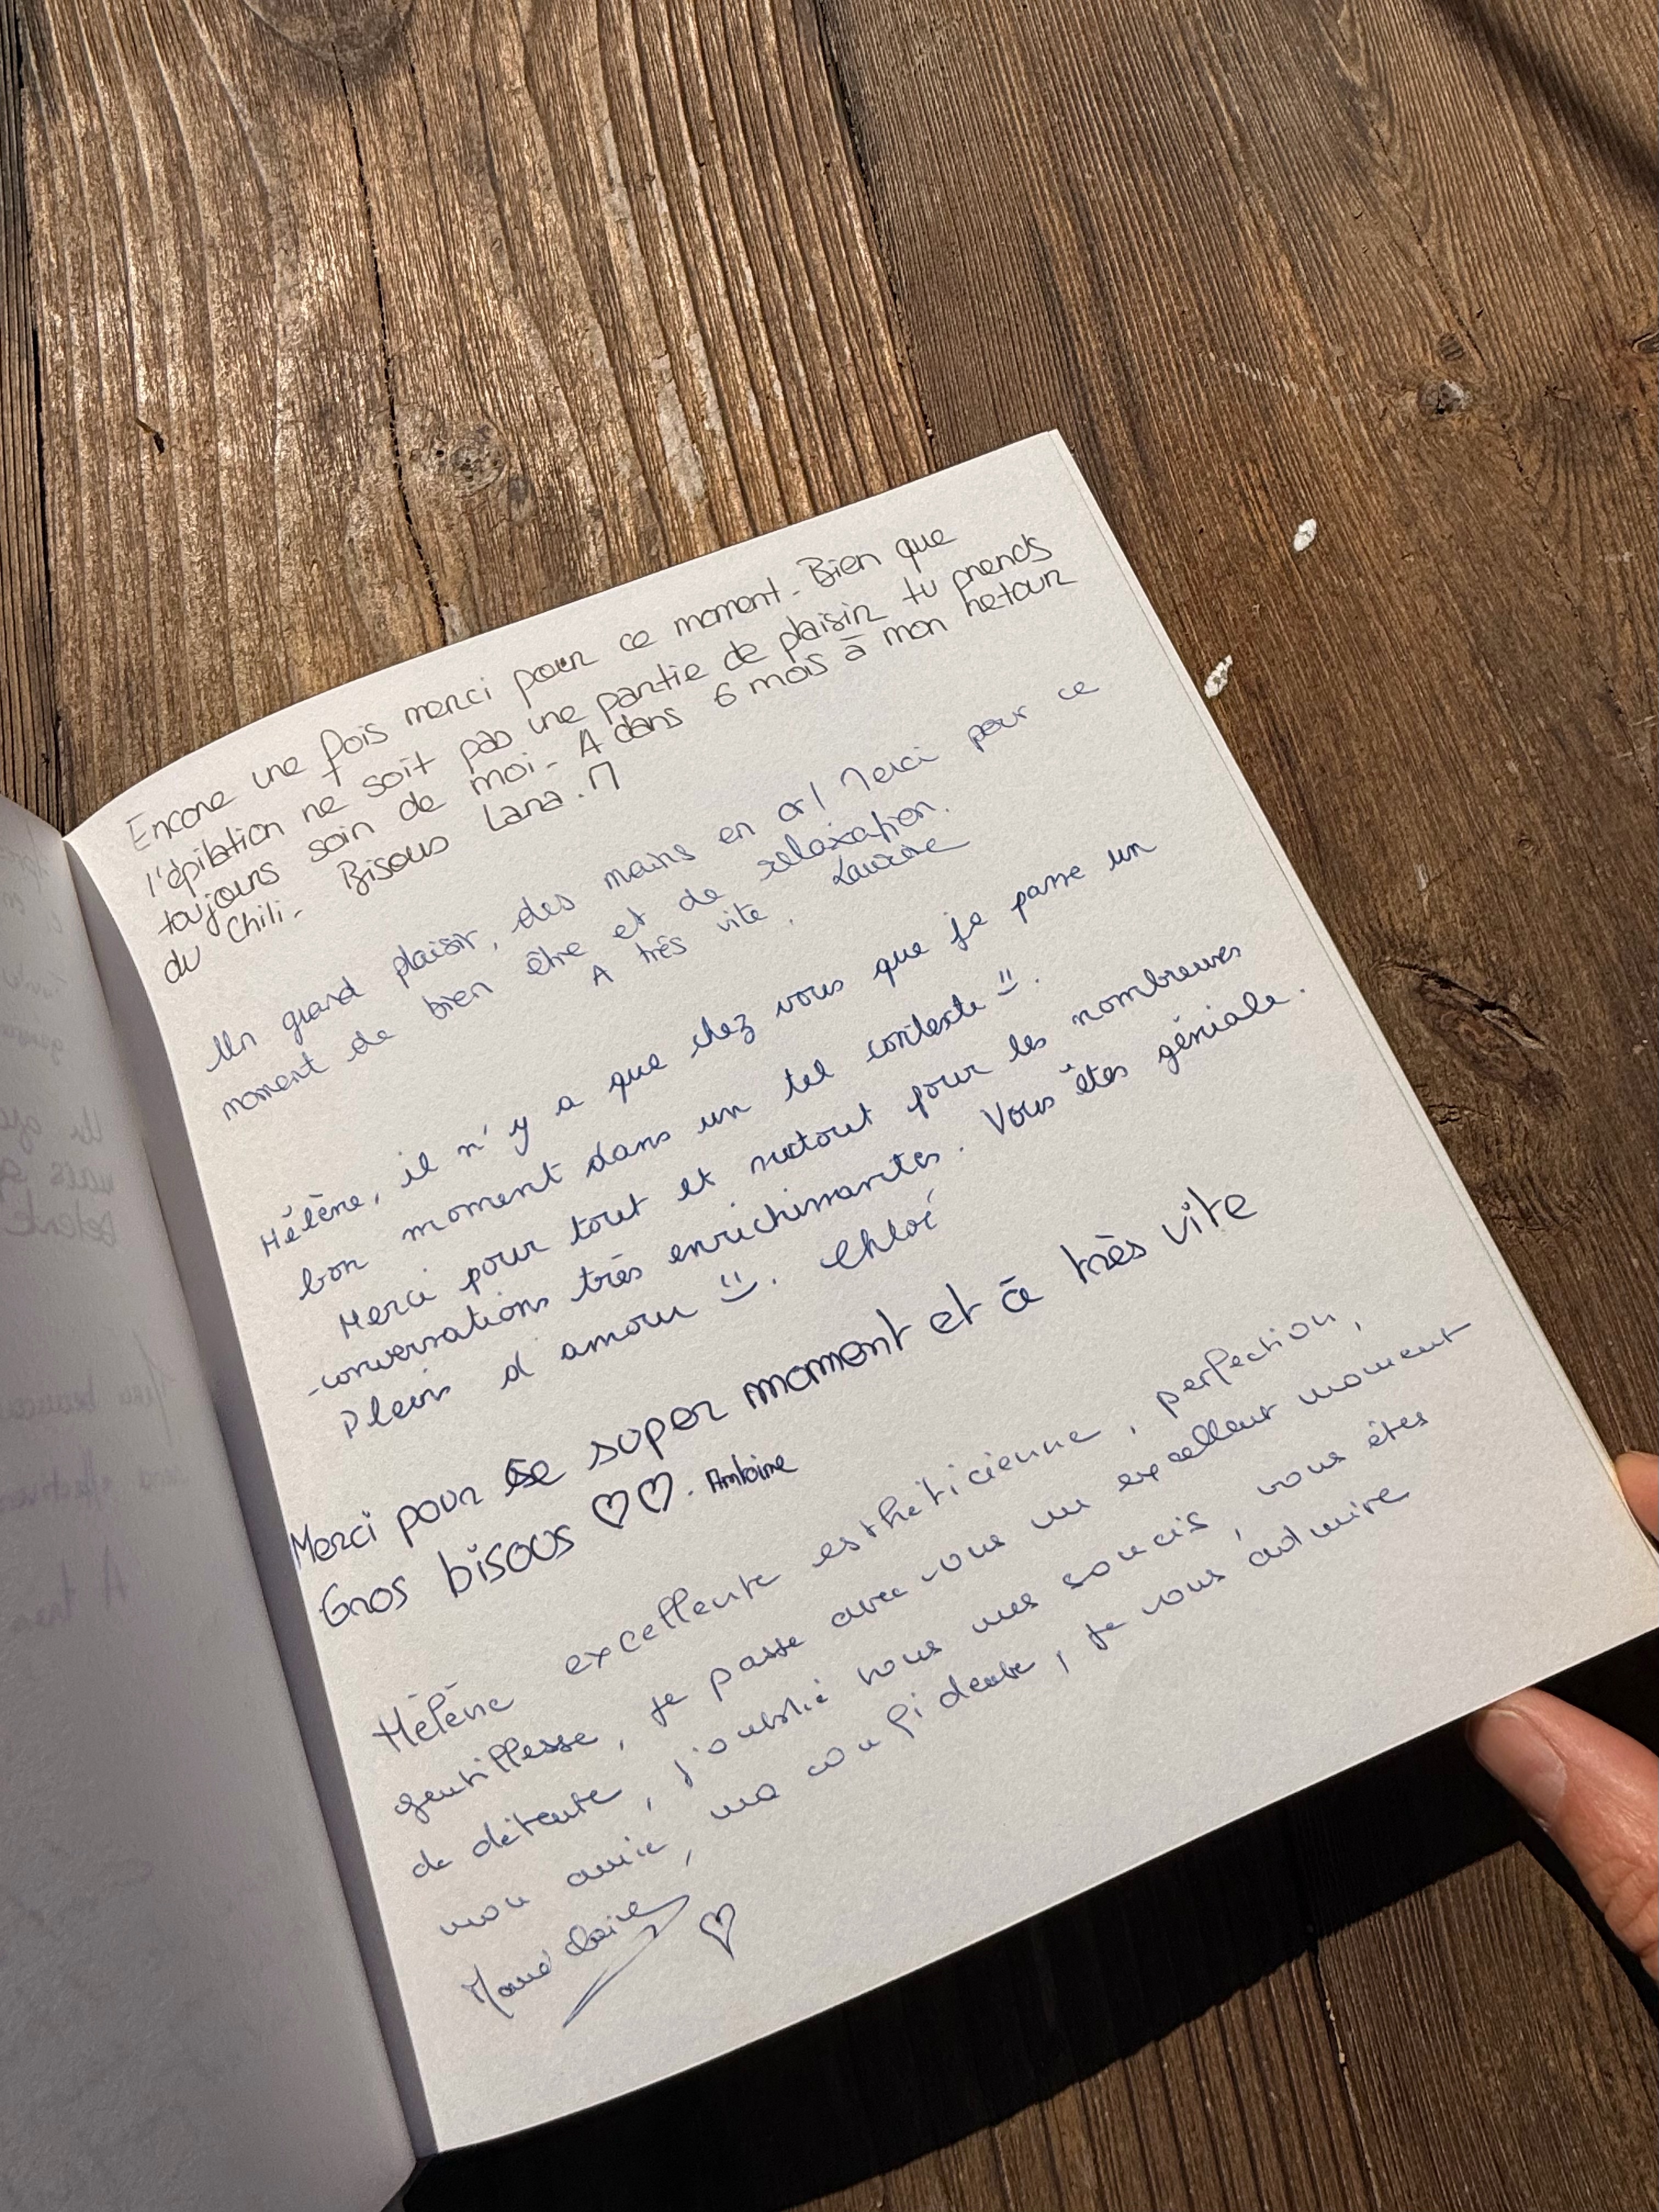 Encore une fois merci pour ce moment. Bien que
l'épilation ne soit pas une partie de plaisir tu prends
toujours soin de moi. A dans 6 mois à mon retour
du Chili. Bisous Lana. M
Un grand plaisir, des mains en or! Merci pour ce
moment de bien être et de relaxation.
A très vite. Laurine
Hélène, il n'y a que chez vous que je passe un
bon moment dans un tel contexte :).
Merci pour tout et surtout pour les nombreuses
conversations très enrichissantes. Vous êtes géniale.
Pleins d'amour :). Chloé
Merci pour ce super moment et à très vite
Gros bisous ♡♡. Antoine
Hélène excellente esthéticienne, perfection,
gentillesse, je passe avec vous un excellent moment
de détente, j'oublie tous mes soucis, vous êtes
mon amie, ma confidente, je vous admire
Marie Claire ♡